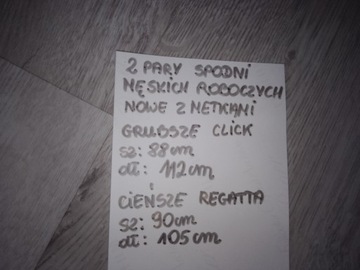 2 PARY SPODNI
MĘSKICH ROBOCZYCH
NOWE Z METKAMI
GRUBSZE CLICK
sz: 88cm
dł: 112cm
i
CIEŃSZE REGATTA
sz: 90cm
dł: 105cm